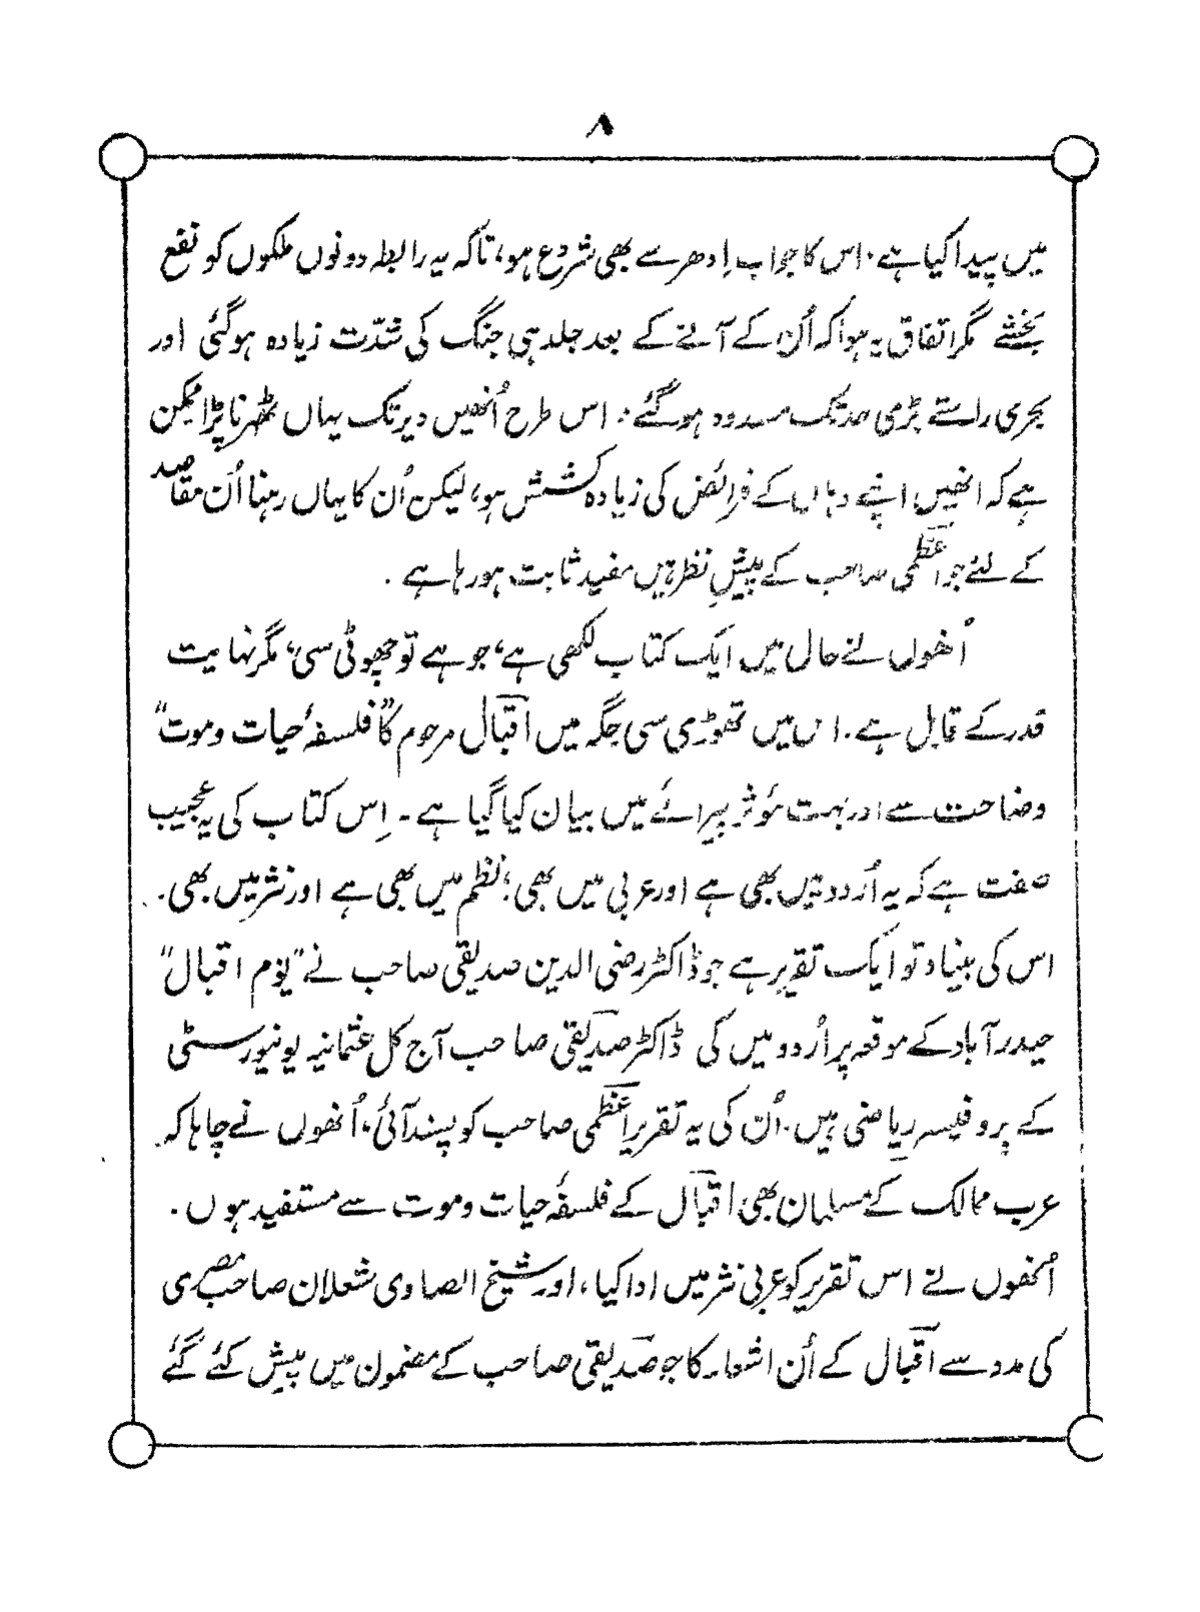 ۸
میں پیدا کیا ہے۔ اس کا جواب اِدھر سے بھی شروع ہو، تاکہ یہ رابطہ دونوں ملکوں کو نفع
بخشے مگر اتفاق یہ ہوا کہ اُن کے آنے کے بعد جلد ہی جنگ کی شدّت زیادہ ہوگئی اور
بحری راستے بڑی حد تک مسدود ہوگئے۔ اس طرح اُنھیں دیر تک یہاں ٹھہرنا پڑا ممکن
ہے کہ انھیں اپنے وہاں کے فرائض کی زیادہ کشش ہو، لیکن اُن کا یہاں رہنا اُن مقاصد
کے لئے جو اعظمی صاحب کے پیشِ نظر ہیں مفید ثابت ہو رہا ہے۔
اُنھوں نے حال میں ایک کتاب لکھی ہے، جو ہے تو چھوٹی سی، مگر نہایت
قدر کے قابل ہے۔ اس میں تھوڑی سی جگہ میں اقبال مرحوم کا "فلسفۂ حیات و موت"
وضاحت سے اور بہت مؤثر پیرائے میں بیان کیا گیا ہے۔ اِس کتاب کی یہ عجیب
صفت ہے کہ یہ اُردو میں بھی ہے اور عربی میں بھی؛ نظم میں بھی ہے اور نثر میں بھی۔
اس کی بنیاد تو ایک تقریر ہے جو ڈاکٹر رضی الدین صدیقی صاحب نے "یوم اقبال"
حیدرآباد کے موقعہ پر اُردو میں کی ڈاکٹر صدیقی صاحب آج کل عثمانیہ یونیورسٹی
کے پروفیسر ریاضی ہیں۔ اُن کی یہ تقریر اعظمی صاحب کو پسند آئی، اُنھوں نے چاہا کہ
عرب ممالک کے مسلمان بھی اقبال کے فلسفۂ حیات و موت سے مستفید ہوں۔
اُنھوں نے اس تقریر کو عربی نثر میں ادا کیا، اور شیخ الصاوی شعلان صاحب مصری
کی مدد سے اقبال کے اُن اشعار کا جو صدیقی صاحب کے مضمون میں پیش کئے گئے